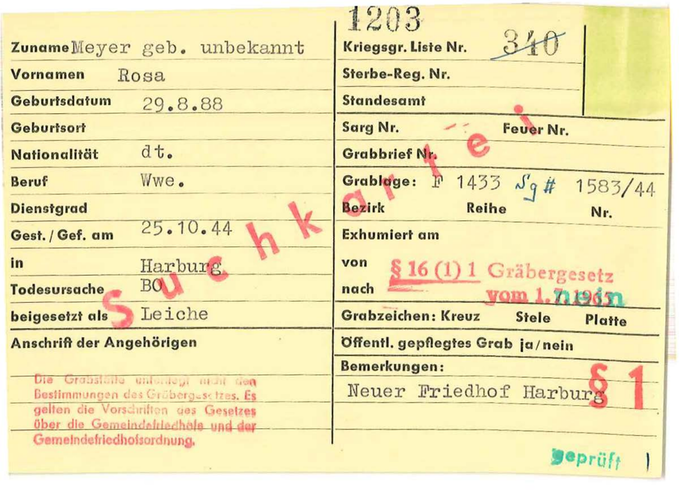 1203
Zuname Meyer geb. unbekannt
Kriegsgr. Liste Nr. 340
Vornamen Rosa
Sterbe-Reg. Nr.
Geburtsdatum 29.8.88
Standesamt
Geburtsort
Sarg Nr. Feuer Nr.
Nationalität dt.
Grabbrief Nr.
Beruf Wwe.
Grablage: F 1433 Sg # 1583/44
Dienstgrad
Bezirk Reihe Nr.
Gest. / Gef. am 25.10.44
Exhumiert am
in Harburg
von § 16 (1) 1 Gräbergesetz
Todesursache BO
nach vom 1.7.1965 nein
beigesetzt als Leiche
Grabzeichen: Kreuz Stele Platte
Anschrift der Angehörigen
Öffentl. gepflegtes Grab ja/nein
Bemerkungen:
Neuer Friedhof Harburg § 1
Suchkartei
Die Grabstätte unterliegt nicht den
Bestimmungen des Gräbergesetzes. Es
gelten die Vorschriften des Gesetzes
über die Gemeindefriedhöfe und der
Gemeindefriedhofsordnung.
geprüft